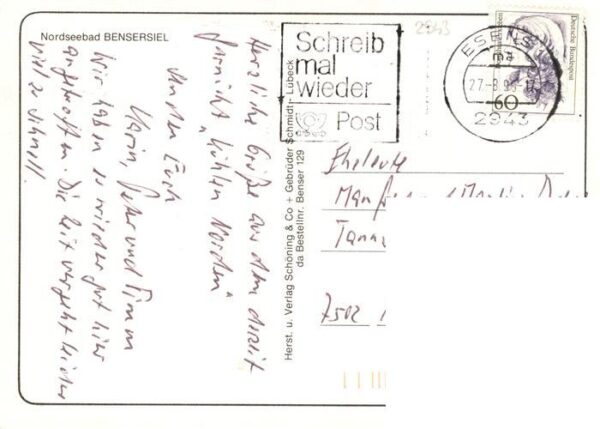 Nordseebad BENSERSIEL
Herzliche Grüße aus dem derzeit
gar nicht "kühlen Norden"
senden Euch
Karin, Peter und Timm
Wir haben es wieder gut hier
angetroffen. Die Zeit vergeht leider
viel zu schnell.
Herst. u. Verlag Schöning & Co + Gebrüder Schmidt · Lübeck
da Bestellnr. Benser 129
2943
Schreib
mal
wieder
Post
ESENS
ma
27.-8.
60
2943
Deutsche Bundespost
Eheleute
Manfred
7502